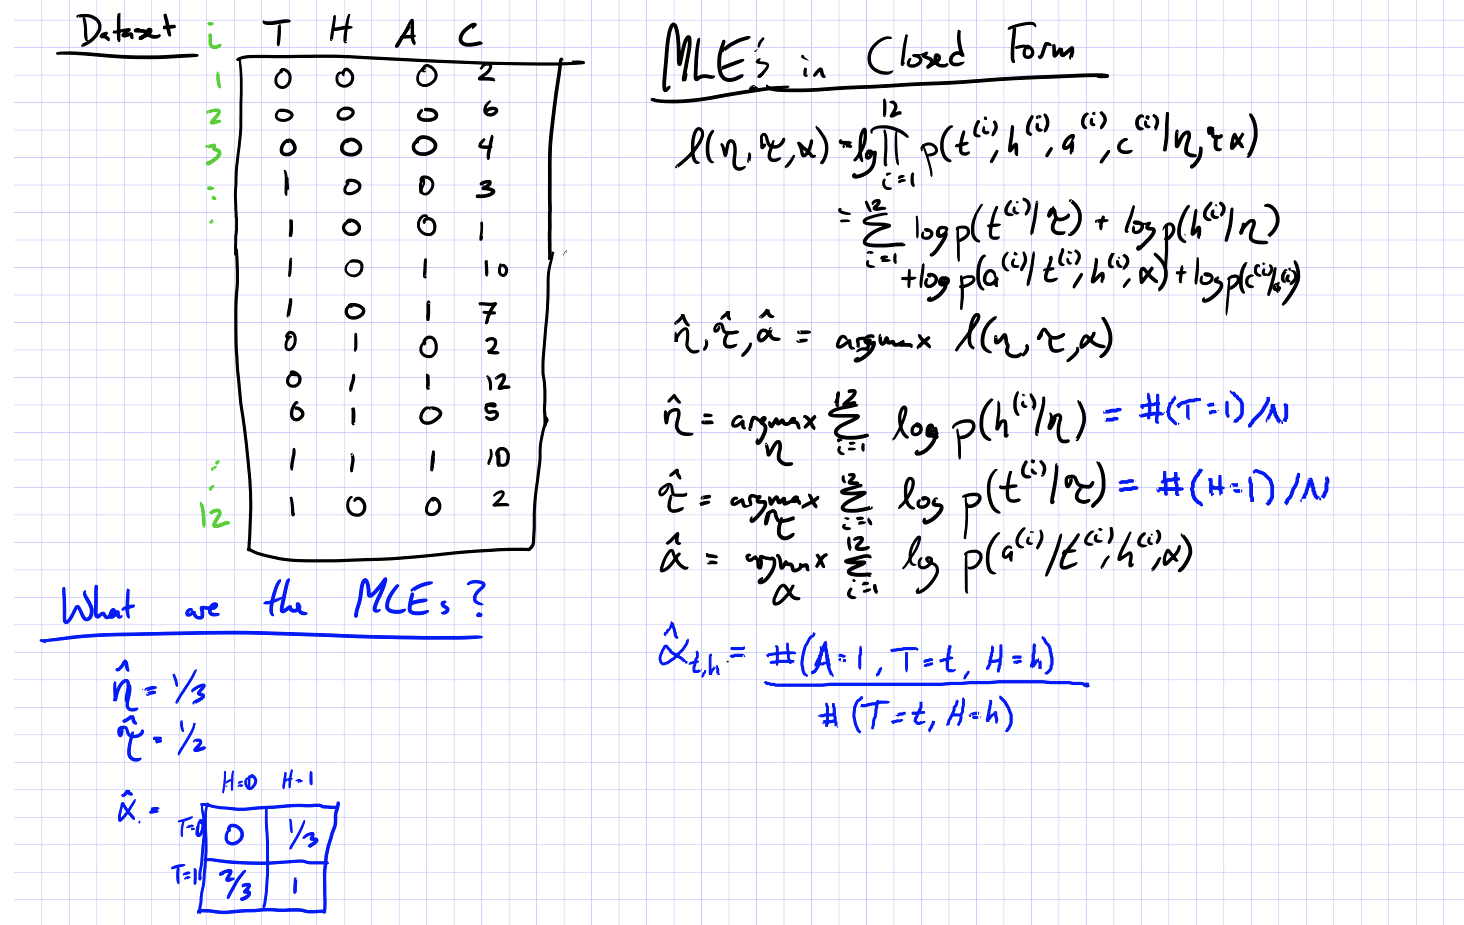 Dataset
i T H A C
1 0 0 0 2
2 0 0 0 6
3 0 0 0 4
⋮ 1 0 0 3
1 0 0 1
1 0 1 10
1 0 1 7
0 1 0 2
0 1 1 12
0 1 0 5
⋮ 1 1 1 10
12 1 0 0 2
What are the MLEs?
η̂ = 1/3
τ̂ = 1/2
H=0 H=1
α̂ =
T=0 0 1/3
T=1 2/3 1
MLE's in Closed Form
l(η, τ, α) = log ∏_{i=1}^{12} p(t^(i), h^(i), a^(i), c^(i) | η, τ, α)
= ∑_{i=1}^{12} log p(t^(i) | τ) + log p(h^(i) | η)
+ log p(a^(i) | t^(i), h^(i), α) + log p(c^(i) | a^(i))
η̂, τ̂, α̂ = argmax l(η, τ, α)
η̂ = argmax_η ∑_{i=1}^{12} log p(h^(i) | η) = #(T=1)/N
τ̂ = argmax_τ ∑_{i=1}^{12} log p(t^(i) | τ) = #(H=1)/N
α̂ = argmax_α ∑_{i=1}^{12} log p(a^(i) | t^(i), h^(i), α)
α̂_{t,h} = #(A=1, T=t, H=h)
#(T=t, H=h)